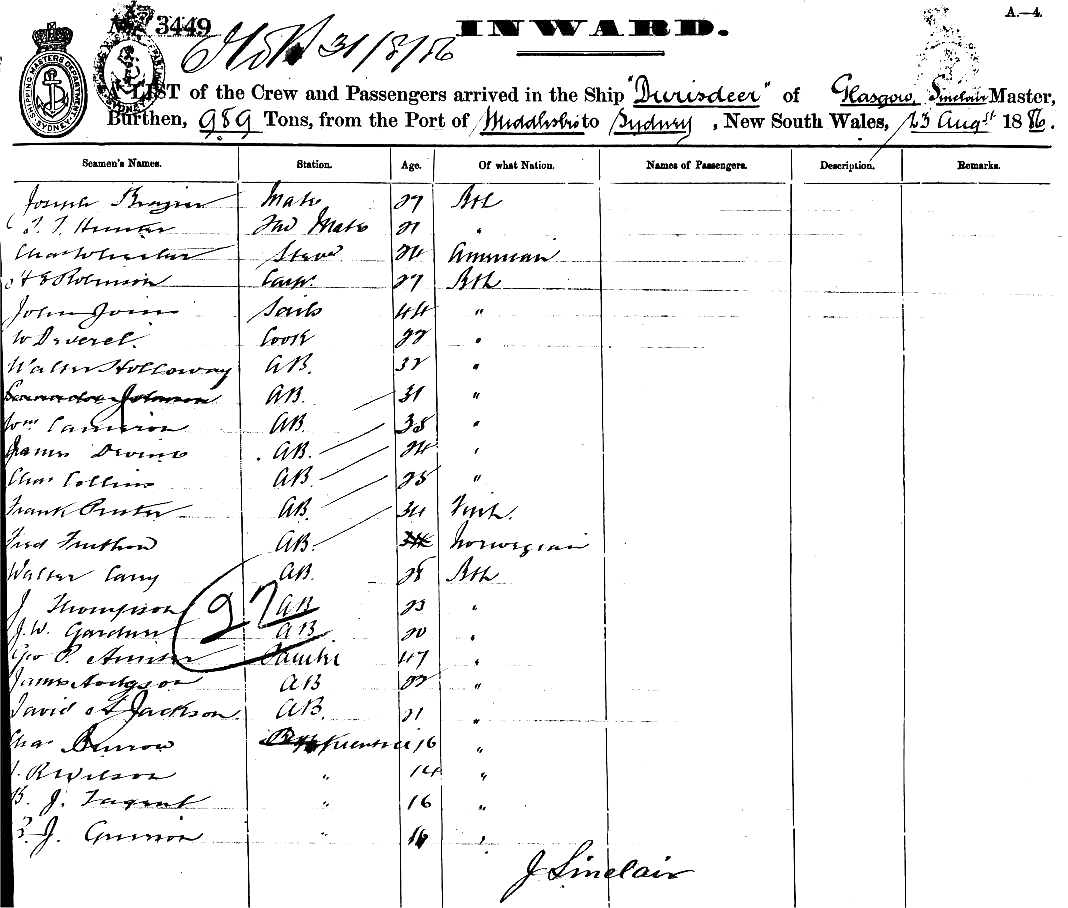 No 3449
INWARD.
A.—4.
31/8/86
SHIPPING MASTERS DEPARTMENT SYDNEY
A LIST of the Crew and Passengers arrived in the Ship "Durisdeer" of Glasgow, Sinclair Master,
Burthen, 989 Tons, from the Port of Middlesbro to Sydney, New South Wales, 23 Augst 1886.
Seamen's Names. Station. Age. Of what Nation. Names of Passengers. Description. Remarks.
Joseph Mate 27 Bth
Hunter 2nd Mate 21 "
Chas Wheeler Stewd 24 American
H E Robinson Carpr 27 Bth
John Sails 44 "
W Deverel. Cook 22 "
Walter Holloway AB. 32 "
Johnson AB. 31 "
Wm Cameron AB 38 "
James Devine AB 24 "
Chas Collins AB 28 "
Frank AB. 34
Fred AB. Norwegian
Walter AB. 28 Bth
J Thompson AB 23 "
27
J.W. Gardner AB 20 "
Geo P. 47 "
James Hodgson AB 22 "
David Jackson. AB. 21 "
Chas Apprentice 16 "
R Wilson " 14 "
B. J. " 16 "
J. " 16 "
J Sinclair